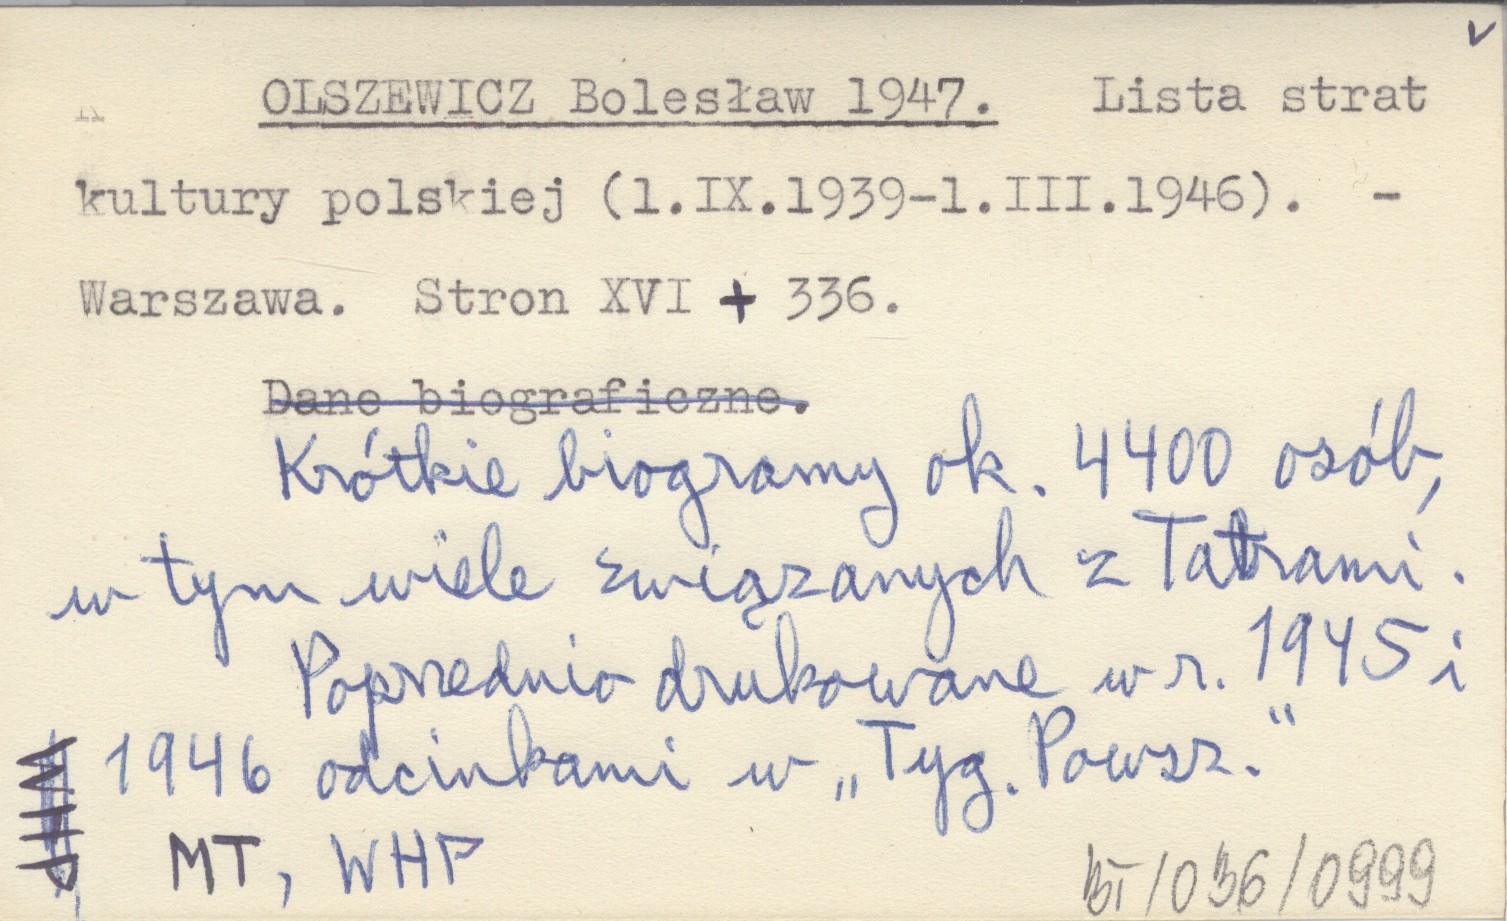 OLSZEWICZ Bolesław 1947. Lista strat
kultury polskiej (1.IX.1939-1.III.1946). -
Warszawa. Stron XVI + 336.
Dane biograficzne.
Krótkie biogramy ok. 4400 osób,
w tym wiele związanych z Tatrami.
Poprzednio drukowane w r. 1945 i
1946 odcinkami w „Tyg. Powsz.“
MT, WHP
BT/036/0999